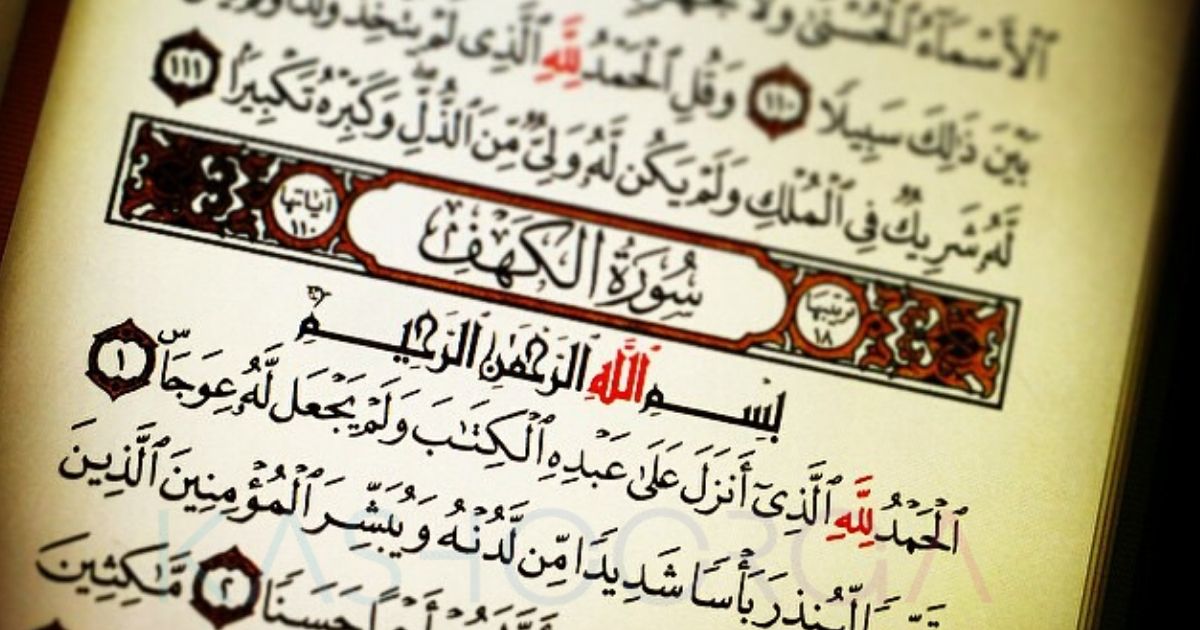 ٱلْأَسْمَآءُ ٱلْحُسْنَىٰ وَلَا
بَيْنَ ذَٰلِكَ سَبِيلًا ١١٠ وَقُلِ ٱلْحَمْدُ لِلَّهِ ٱلَّذِى لَمْ يَتَّخِذْ وَلَدًا
لَّهُۥ شَرِيكٌ فِى ٱلْمُلْكِ وَلَمْ يَكُن لَّهُۥ وَلِىٌّ مِّنَ ٱلذُّلِّ وَكَبِّرْهُ تَكْبِيرًۢا ١١١
ترتيبها ١٨ سُورَةُ الْكَهْفِ آيَاتها ١١٠
بِسْمِ ٱللَّهِ ٱلرَّحْمَٰنِ ٱلرَّحِيمِ
ٱلْحَمْدُ لِلَّهِ ٱلَّذِىٓ أَنزَلَ عَلَىٰ عَبْدِهِ ٱلْكِتَٰبَ وَلَمْ يَجْعَل لَّهُۥ عِوَجَاۜ ١
لِّيُنذِرَ بَأْسًا شَدِيدًا مِّن لَّدُنْهُ وَيُبَشِّرَ ٱلْمُؤْمِنِينَ ٱلَّذِينَ
حَسَنًا ٢ مَّٰكِثِينَ
KASHOORGA